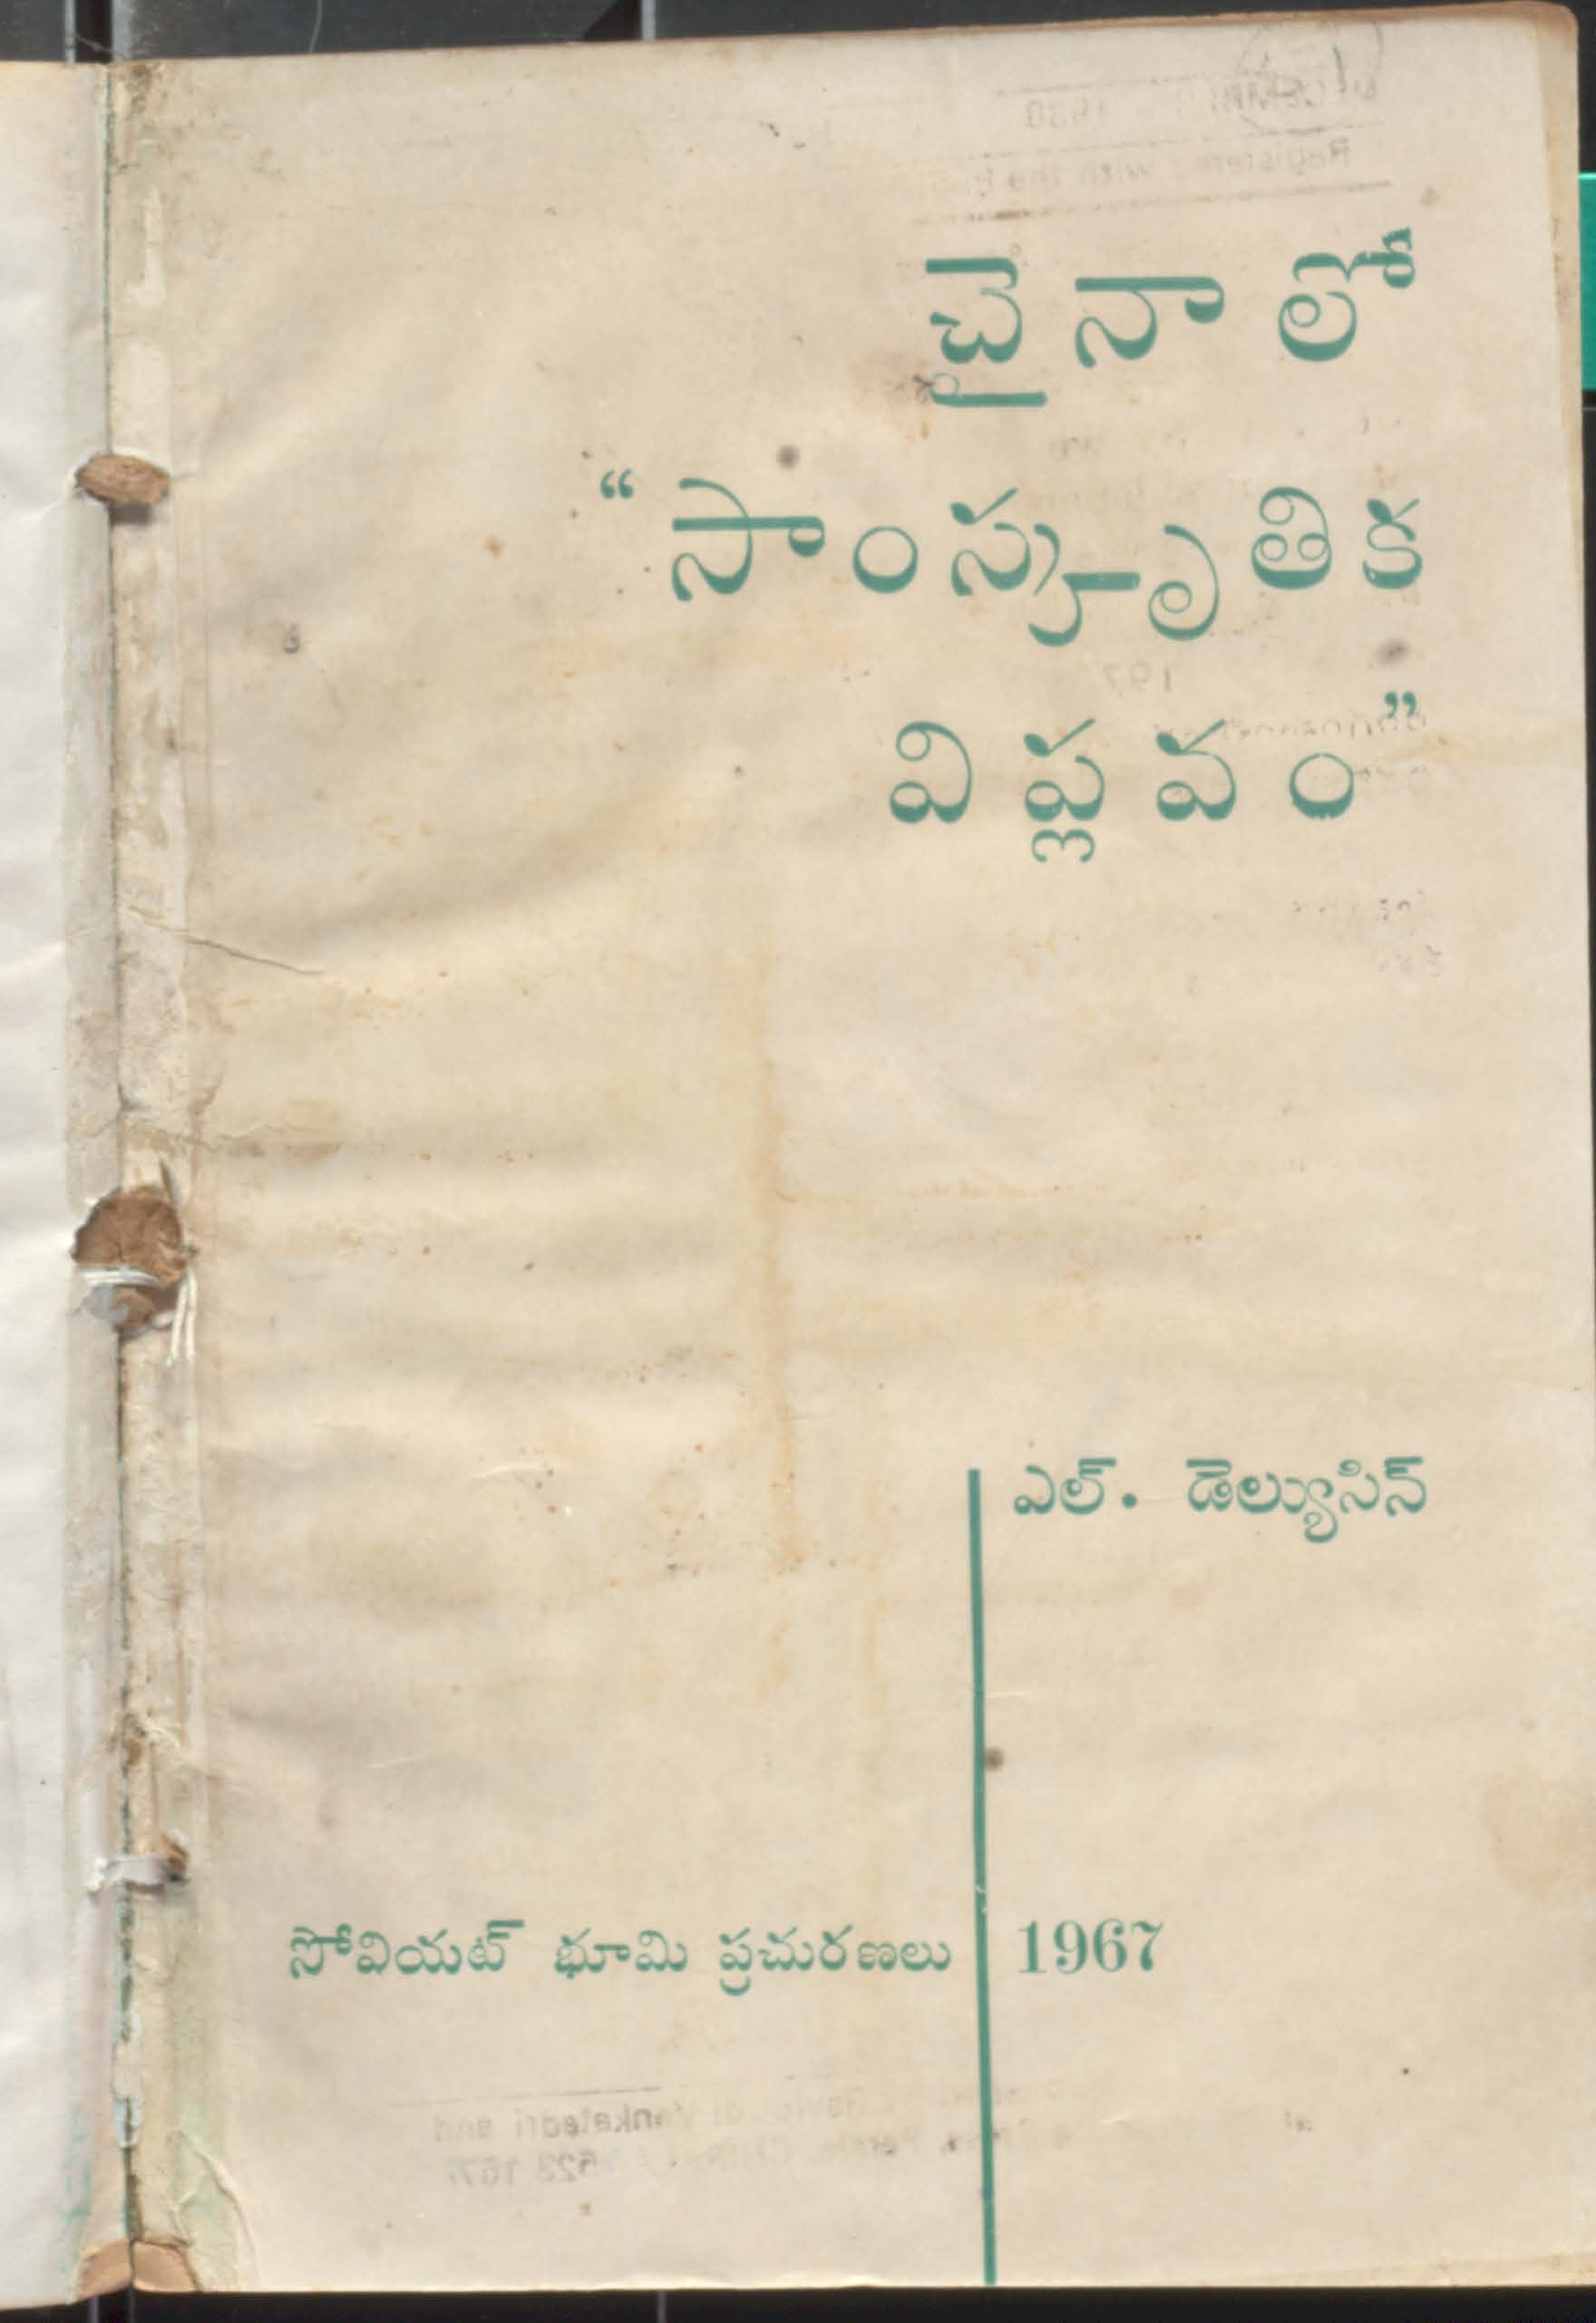 చైనాలో
“సాంస్కృతిక
విప్లవం”
ఎల్. డెల్యుసిన్
సోవియట్ భూమి ప్రచురణలు 1967